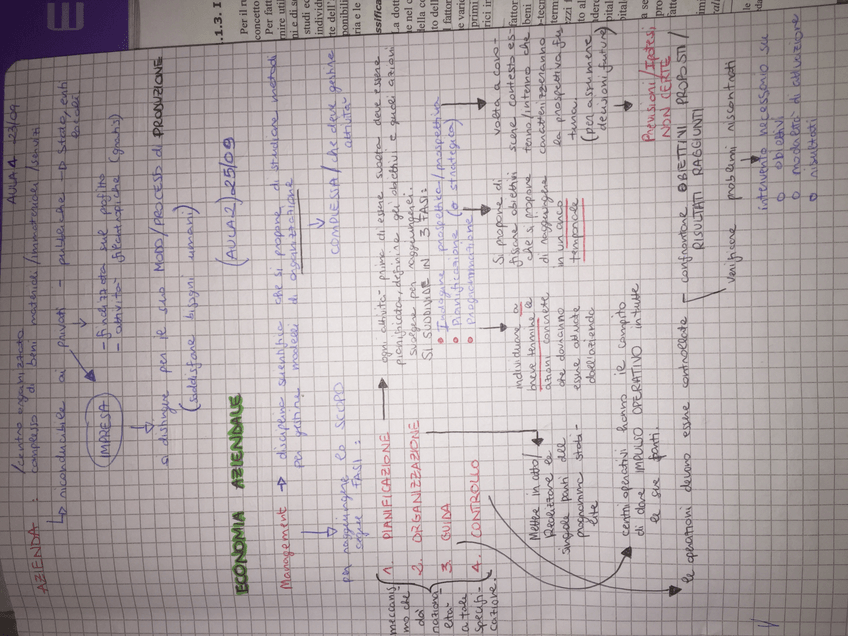 AULA 4 23/09
AZIENDA : centro organizzato
complesso di beni materiali/immateriali/servizi
riconducibile ai privati - pubbliche → Stato, enti locali
IMPRESA
- finalizzata sul profitto
- attività filantropiche (gratis)
si distingue per il suo MODO/PROCESSO di PRODUZIONE
(soddisfare bisogni umani)
ECONOMIA AZIENDALE (AULA 2) 25/09
Management → disciplina scientifica che si propone di studiare metodi
per gestire modelli di organizzazione
COMPLESSA / che deve gestire
attività
per raggiungere lo SCOPO
segue FASI :
1. PIANIFICAZIONE
2. ORGANIZZAZIONE
3. GUIDA
4. CONTROLLO
meccanis
mo che
dà
naziona
lità
a tale
specifi-
cazione
ogni attività prima di essere svolta deve essere
pianificata, definire gli obiettivi e quali azioni
svolgere per raggiungerli.
SI SUDDIVIDE IN 3 FASI :
• Indagine prospettica/prospettiva
• Pianificazione (o strategica)
• Programmazione
volta a cono-
scere contesto es-
terno/interno che
caratterizzeranno
la prospettiva fu
tura.
(per assumere
decisioni future)
Previsioni/Ipotesi
NON CERTE
Si propone di
fissare obiettivi
che si propone
di raggiungere
in un arco
temporale
individuare a
breve termine le
azioni concrete
che dovranno
essere attuate
dall'azienda
Mettere in atto/
Realizzare le
singole parti del
programma stabi-
lite
centri operativi hanno il compito
di dare IMPULSO OPERATIVO in tutte
le sue parti.
le operazioni devono essere controllate - confrontare OBIETTIVI PROPOSTI /
RISULTATI RAGGIUNTI
verificare problemi riscontrati
intervento necessario su
o obiettivi
o modalità di attuazione
o risultati